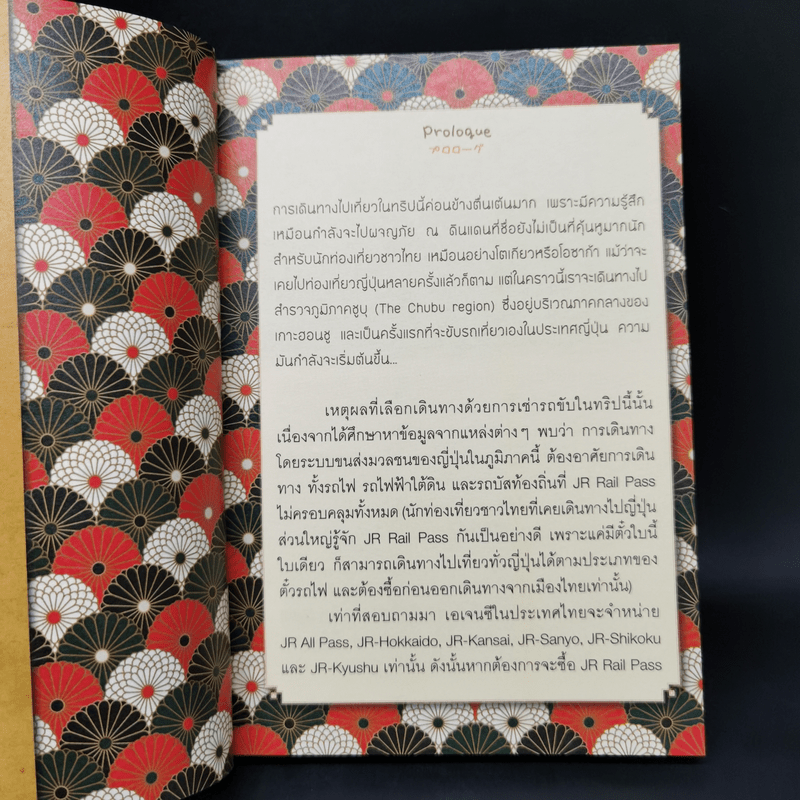 Prologue
プロローグ
การเดินทางไปเที่ยวในทริปนี้ค่อนข้างตื่นเต้นมาก เพราะมีความรู้สึก
เหมือนกำลังจะไปผจญภัย ณ ดินแดนที่ชื่อยังไม่เป็นที่คุ้นหูมากนัก
สำหรับนักท่องเที่ยวชาวไทย เหมือนอย่างโตเกียวหรือโอซาก้า แม้ว่าจะ
เคยไปท่องเที่ยวญี่ปุ่นหลายครั้งแล้วก็ตาม แต่ในคราวนี้เราจะเดินทางไป
สำรวจภูมิภาคชูบุ (The Chubu region) ซึ่งอยู่บริเวณภาคกลางของ
เกาะฮอนชู และเป็นครั้งแรกที่จะขับรถเที่ยวเองในประเทศญี่ปุ่น ความ
มันกำลังจะเริ่มต้นขึ้น...
เหตุผลที่เลือกเดินทางด้วยการเช่ารถขับในทริปนี้นั้น
เนื่องจากได้ศึกษาหาข้อมูลจากแหล่งต่างๆ พบว่า การเดินทาง
โดยระบบขนส่งมวลชนของญี่ปุ่นในภูมิภาคนี้ ต้องอาศัยการเดิน
ทาง ทั้งรถไฟ รถไฟฟ้าใต้ดิน และรถบัสท้องถิ่นที่ JR Rail Pass
ไม่ครอบคลุมทั้งหมด (นักท่องเที่ยวชาวไทยที่เคยเดินทางไปญี่ปุ่น
ส่วนใหญ่รู้จัก JR Rail Pass กันเป็นอย่างดี เพราะแค่มีตั๋วใบนี้
ใบเดียว ก็สามารถเดินทางไปเที่ยวทั่วญี่ปุ่นได้ตามประเภทของ
ตั๋วรถไฟ และต้องซื้อก่อนออกเดินทางจากเมืองไทยเท่านั้น)
เท่าที่สอบถามมา เอเจนซีในประเทศไทยจะจำหน่าย
JR All Pass, JR-Hokkaido, JR-Kansai, JR-Sanyo, JR-Shikoku
และ JR-Kyushu เท่านั้น ดังนั้นหากต้องการจะซื้อ JR Rail Pass